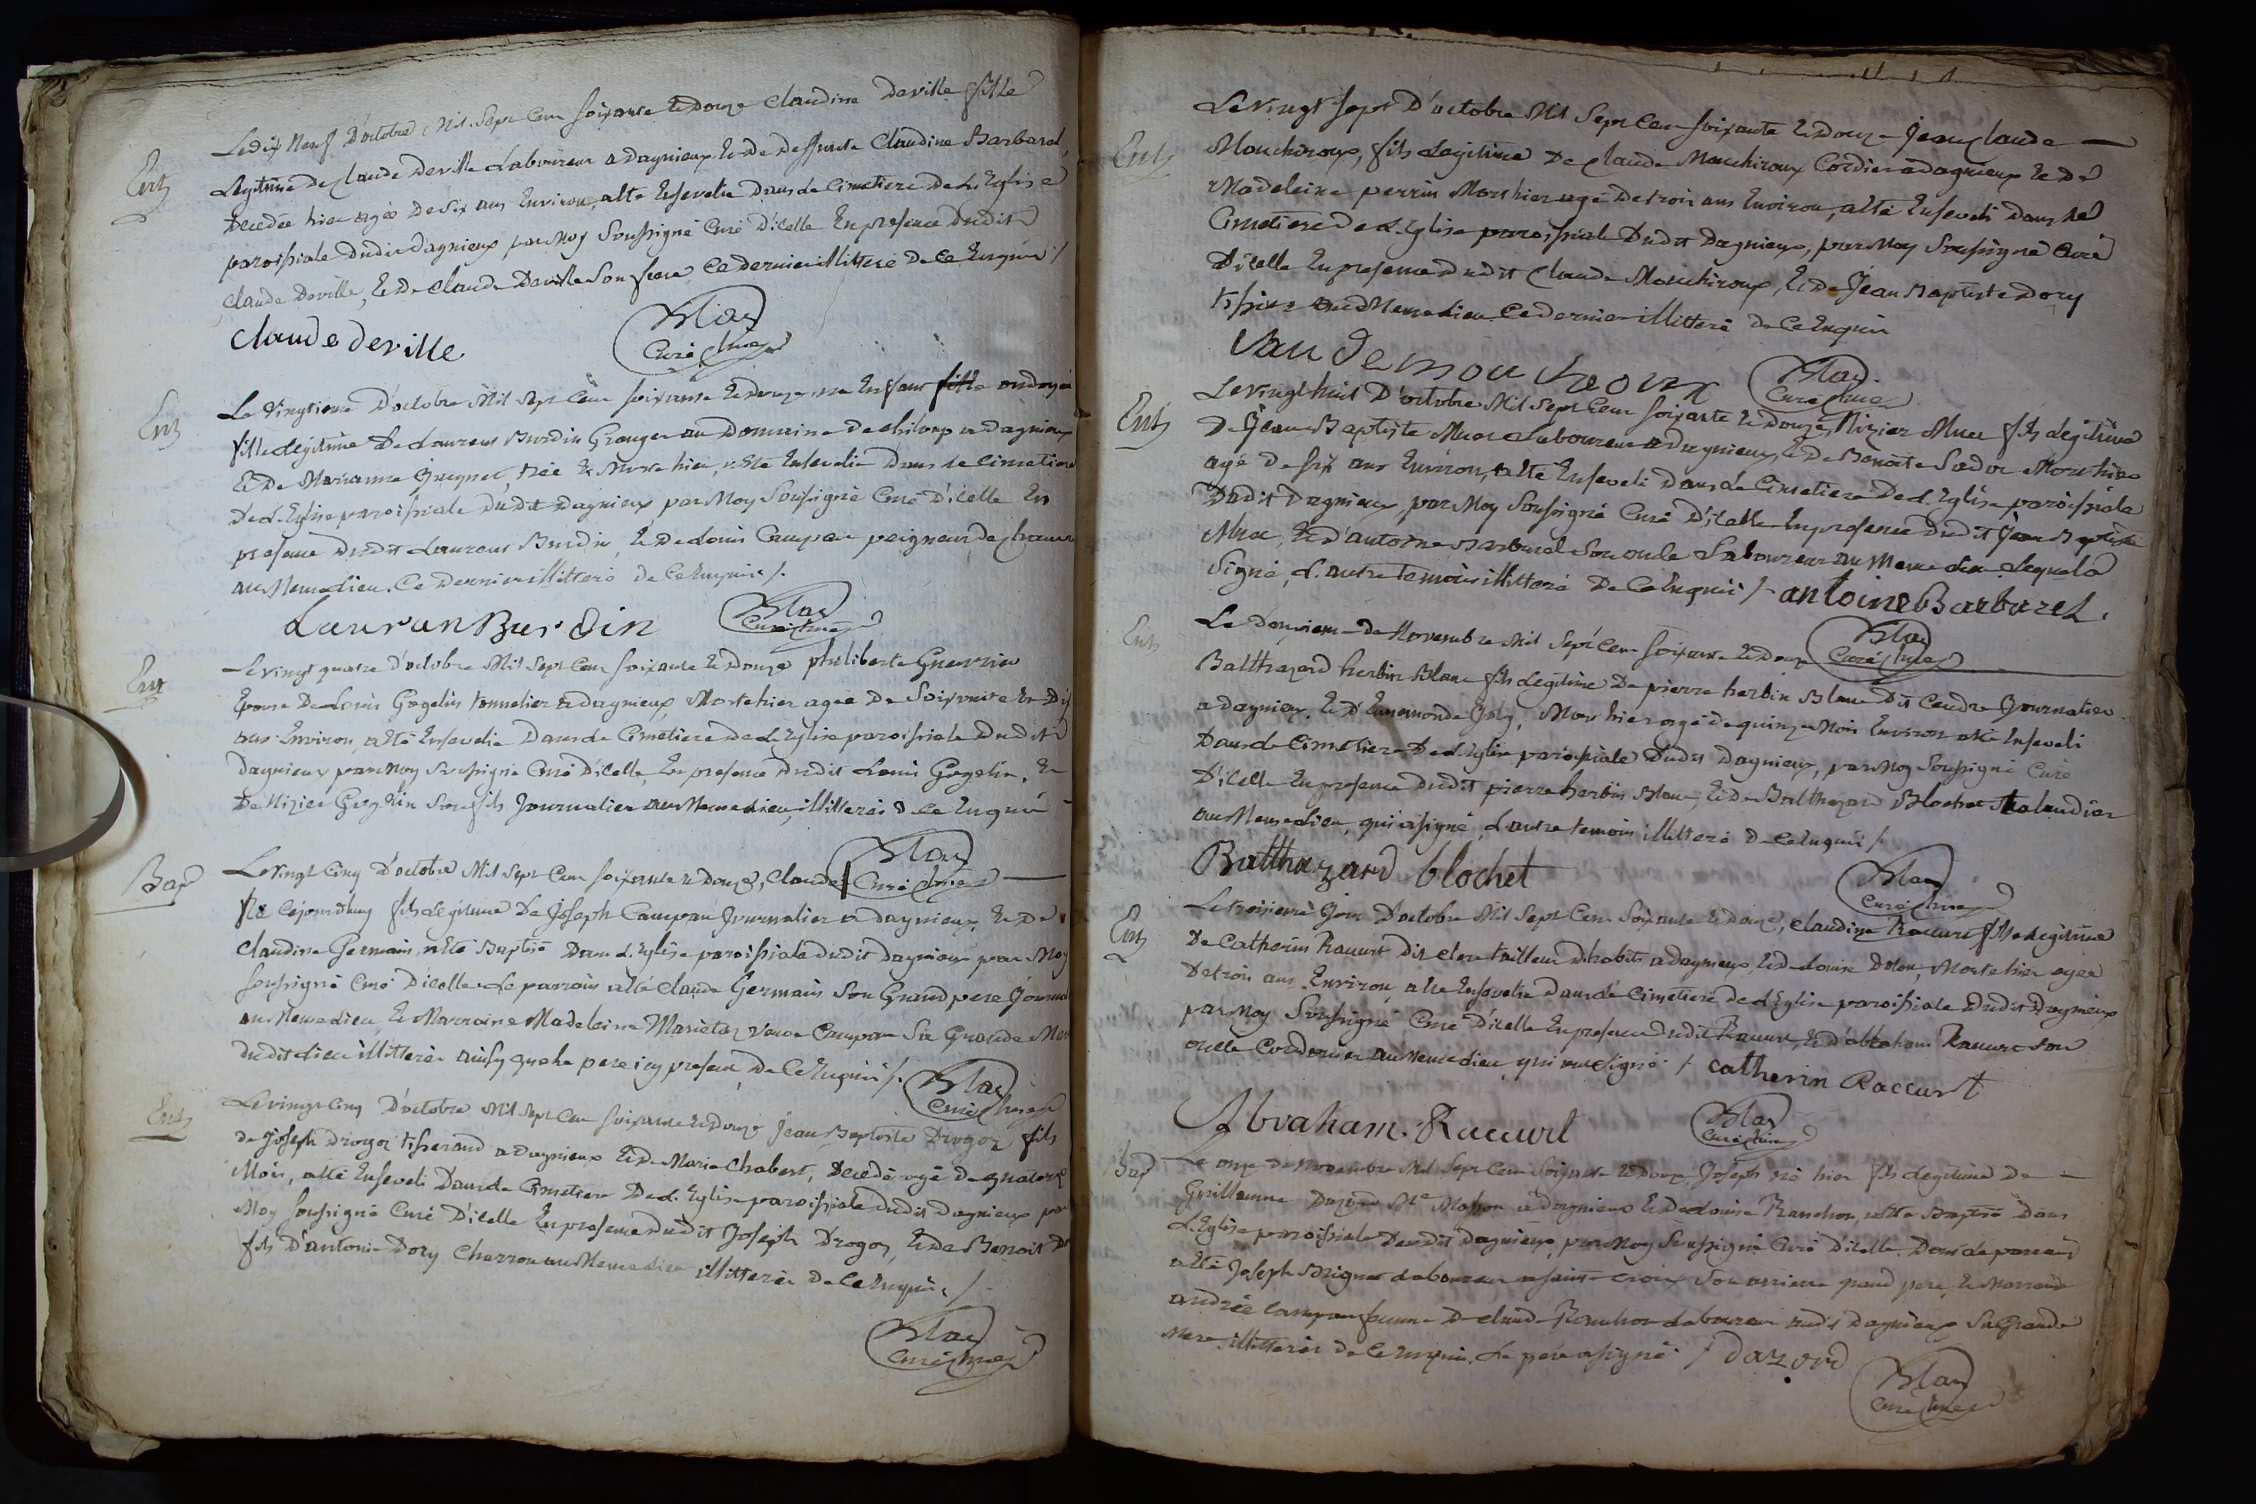 Ent
Le dix Neuf D'octobre Mil Sept Cent soixante et Douze Claudine Deville fille
Legitime de Claude Deville Laboureur a Dagnieux et de deffunte Claudine Barbarel,
decedée hier agée de six ans Environ, a été Ensevelie dans Le Cimetiere de L'Eglise
paroissiale dudit dagnieux par Moy Soussigné Curé d'icelle En presence dudit
Claude Deville, et de Claude Deville Son frere Ce dernier illitteré de Ce Enquis /
claude deville
Blay
Curé
Ent
Le Vingtieme D'octobre Mil Sept Cent soixante et Douze un Enfant fille ondoyée
fille Legitime de Laurent Burdin Granger au Domaine de chiloup a dagnieux
et de Marianne Guignet, Née et Morte hier, a été Ensevelie dans le Cimetiere
de L'Eglise paroissiale dudit dagnieux par Moy Soussigné Curé d'icelle En
presence dudit Laurent Burdin, et de Louis Campan peigneur de chanvre
au Meme Lieu. Ce dernier illitteré de Ce Enquis /.
Lauran Burdin
Blay
Curé
Ent
Le vingt quatre d'octobre Mil Sept Cent soixante et Douze philiberte Guerrin
Epouse de Louis Gogelin tonnelier a dagnieux, Morte hier agée de Soixante et dix
ans Environ, a été Ensevelie dans Le Cimetiere de L'Eglise paroissiale dudit
dagnieux par Moy Soussigné Curé d'icelle, En presence dudit Louis Gogelin, Et
de Nizier Gogelin Son fils Journalier au Meme Lieu, illitterés de Ce Enquis
Blay
Curé
Bap
Le Vingt Cinq D'octobre Mil Sept Cent soixante et Douze, Claude
Né Cejourdhuy fils Legitime de Joseph Campan Journalier a dagnieux et de
Claudine Germain, a été Baptisé dans L'Eglise paroissiale dudit dagnieux par Moy
Soussigné Curé d'icelle. Le parrain a été Claude Germain Son Grand pere Journal
au Meme Lieu, et Marraine Madeleine Mariétas Veuve Campan Sa Grande Mere
dudit Lieu illitterés ainsy que Le pere icy present de Ce Enquis /.
Blay
Curé
Ent
Le vingt Cinq D'octobre Mil Sept Cent soixante et Douze Jean Baptiste Drogoz fils
de Joseph Drogoz tisserand a dagnieux et de Marie Chabert, Decedé agé de quatorze
Mois, a été Enseveli dans Le Cimetiere De L'Eglise paroissiale dudit dagnieux par
Moy soussigné Curé D'icelle En presence dudit Joseph Drogoz, et de Benoit
fils D'antoine Dory Charron au Meme Lieu illitterés de Ce Enquis /.
Blay
Curé
Ent
Le vingt Sept D'octobre Mil Sept Cent soixante et Douze Jean Claude
Mouchiroux, fils Legitime de Claude Mouchiroux Cordier a dagnieux et de
Madeleine perrin Mort hier agé de trois ans Environ, a été Enseveli dans Le
Cimetiere de L'Eglise paroissiale dudit dagnieux, par Moy Soussigné Curé
d'icelle En presence dudit Claude Mouchiroux, et de Jean Baptiste Dory
tissier au Meme Lieu Ce dernier illitteré de Ce Enquis
Blay
Curé
Ent
Le vingt huit D'octobre Mil Sept Cent soixante et Douze Nizier Muet fils Legitime
De Jean Baptiste Muet Laboureur a dagnieux, et de Benoite Mort hier
agé de six ans Environ, a été Enseveli dans Le Cimetiere de L'Eglise paroissiale
Dudit Dagnieux, par Moy Soussigné Curé D'icelle En presence dudit Jean Baptiste
Muet, et d'antoine Barbarel Son oncle Laboureur au Meme Lieu Lequel a
Signé, L'autre temoin illitteré De Ce Enquis /. antoine Barbarel.
Blay
Curé
Ent
Le Douzieme de Novembre Mil Sept Cent soixante et Douze
Balthazard herbin Blanc fils Legitime De pierre herbin Blanc dit Cendre Journalier
a dagnieux et d'Ennemonde Joly, Mort hier agé de quinze Mois Environ a été Enseveli
Dans Le Cimetiere De L'Eglise paroissiale dudit Dagnieux, par Moy Soussigné Curé
D'icelle En presence dudit pierre herbin Blanc, et de Balthazard Blochet Taladier
au Meme Lieu, qui a signé, L'autre temoin illitteré de Ce Enquis /.
Balthazard blochet
Blay
Curé
Ent
Le troisieme Jour D'octobre Mil Sept Cent Soixante et Douze, Claudine Raccurt fille Legitime
De Catherin Raccurt dit clerc tailleur d'habits a Dagnieux, et de Louise Dolon, Morte hier agée
De trois ans Environ, a été Ensevelie dans Le Cimetiere de L'Eglise paroissiale dudit Dagnieux
par Moy Soussigné Curé D'icelle En presence dudit Raccurt, et d'abraham Raccurt Son
oncle Cordonnier au Meme Lieu qui ont Signé /. catherin Raccurt
Abraham. Raccurt
Blay
Curé
Bap
Le onze de Novembre Mil Sept Cent Soixante et Douze Joseph né hier fils Legitime de
Guillaume Dazord Me Masson a Dagnieux et de Louise Ranchon, a été Baptisé dans
L'Eglise paroissiale dudit Dagnieux par Moy Soussigné Curé d'icelle. Dont Le parrain
a été Joseph Laboureur a Sainte Croix Son arriere grand pere, et Marraine
andrée Campan femme De Claude Ranchon Laboureur audit Dagnieux Sa Grande
Mere illitterés de Ce Enquis. Le pere a signé /. dazord
Blay
Curé